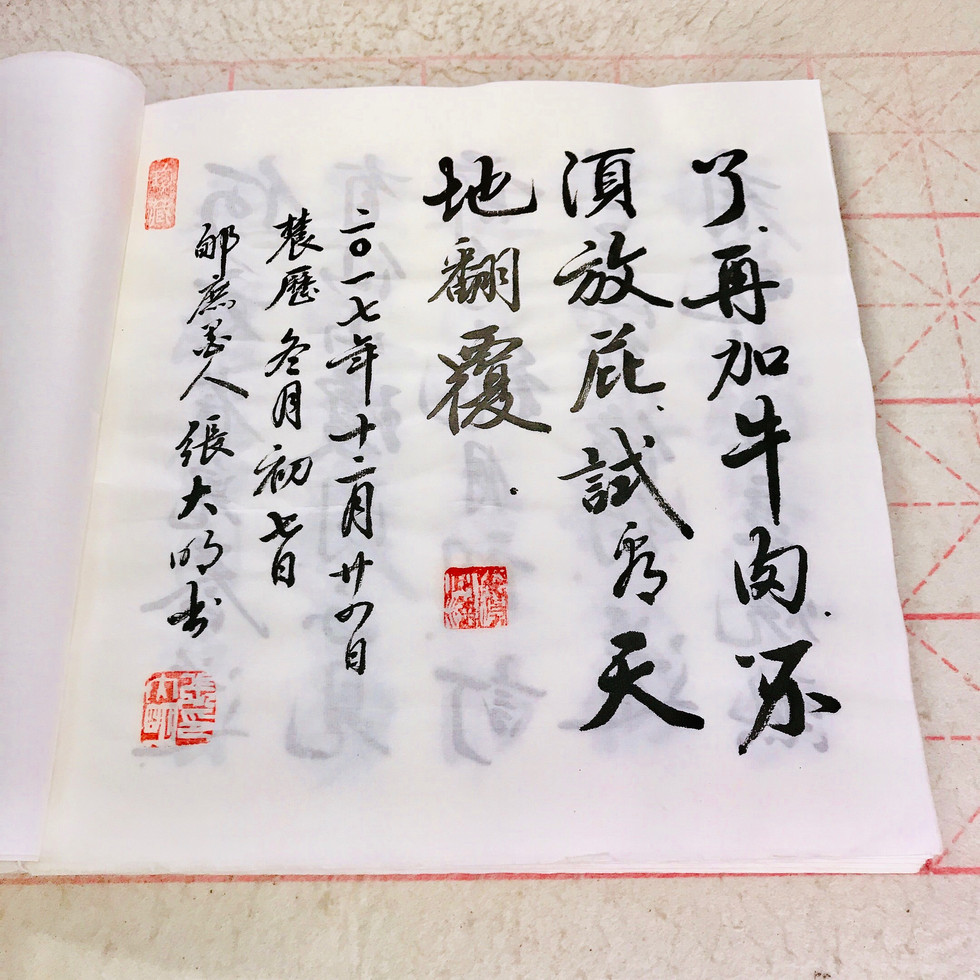 了再加牛肉不
須放屁試看天
地翻覆
二〇一七年十二月廿四日
農歷冬月初七日
張大明书